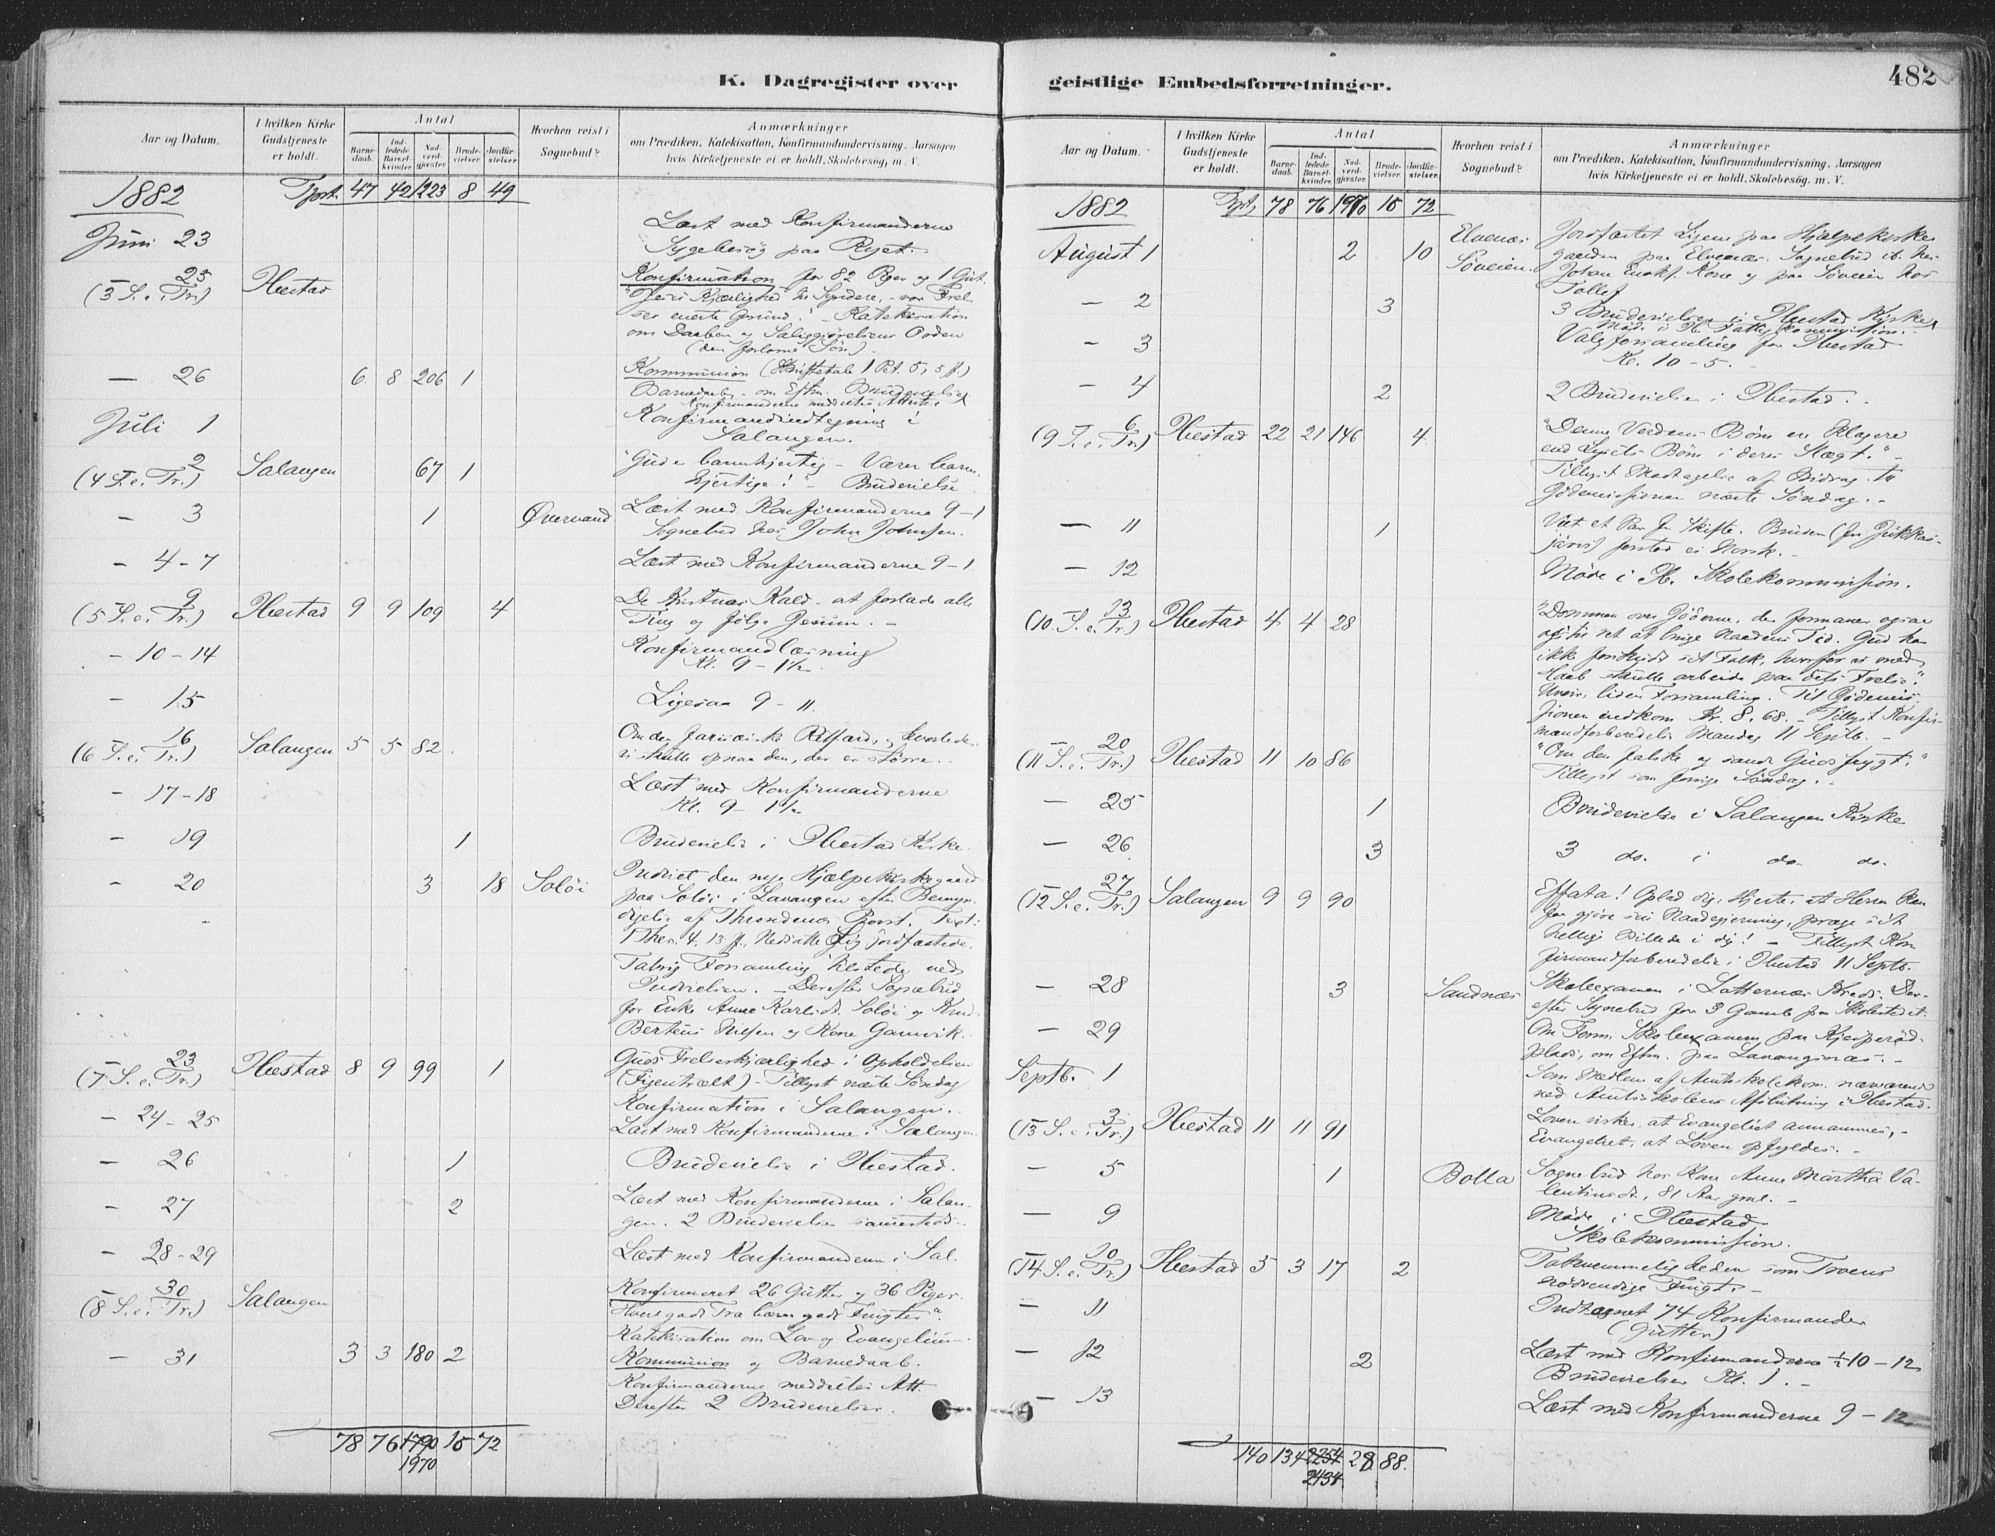 K. Dagregister over
Aar og Datum.
I hvilken Kirke Gudstjeneste er holdt.
Antal
Barnedaab.
Indledede Barselkvinder.
Nadverdgjæster
Brudevielser
Jordfæstelser.
Hvorhen reist i Sognebud?
Anmærkninger
om Prædiken, Katekisation, Konfirmandundervisning, Aarsagen
hvis Kirketjeneste ei er holdt, Skolebesøg, m. V.
1882 Tpsrt. 47 42 1223 8 49
Juni 23 Læst med Konfirmanderne
Sygebesøg paa
25 (3 S. e. Tr.) Ibestad Konfirmation for 82 Piger og 1 Gut.
"Jesu Kjærlighed til Syndere, - vor Frel-
ses eneste Grund." - Katekisation
om Daaben og Saliggjørelsens Orden
(den forlorne Søn).
— 26 6 8 206 1 Kommunion (Skriftetale 1 Pet. 5, 5 f.)
Barnedaab - om Eftm. Brudevielse
Konfirmanderne meddeltes Attester
Juli 1 Konfirmandindtegning i
Salangen.
2 (4 S. e. Tr.) Salangen 67 1 "Gud er barmhjertig - Værer barm-
hjertige!" - Brudevielse
- 3 1 Øvervand Læst med Konfirmanderne 9-1
Sognebud hos John Johnsen.
- 4-7 Læst med Konfirmanderne 9-1
9 (5 S. e. Tr.) Ibestad 9 9 109 4 De Kristnes Kald - at forlade alle
Ting og følge Jesum. -
- 10-14 Konfirmandlæsning
Kl. 9 - 1½.
- 15 Ligesaa 9 - 11.
16 (6 S. e. Tr.) Salangen 5 5 82. Om den farisæiske Retfærd, og hvorledes
vi skulle opnaa den, der er større.
- 17-18 Læst med Konfirmanderne
Kl. 9 - 1½
- 19 1 Brudevielse i Ibestad Kirke.
- 20 3 18 Soløi Indviet den nye Hjælpekirkegaard
paa Soløi i Lavangen efter Bemyn-
digelse af Throndenæs Provst. Text:
1 Thes. 4. 13 f. Nedsatte Lig jordfæstede.
Talrig Forsamling tilstede ved
Indvielsen. - Derefter Sognebud
for Enke Anne Karlsd. Soløi og Knud
Berteus Nilsen og Kone Gamvik.
23 (7 S. e. Tr.) Ibestad 8 9 99 1 Guds Frelserkjærlighed i Opholdelsen
(Figentræet) - Tillyst næste Søndag
Konfirmation i Salangen.
— 24-25 Læst med Konfirmanderne i Salangen
- 26 1 Brudevielse i Ibestad.
- 27 2 Læst med Konfirmanderne i Salan-
gen. 2 Brudevielser sammesteds.
- 28-29 Læst med Konfirmanderne i Sal.
30 (8 S. e. Tr.) Salangen Konfirmeret 26 Gutter og 36 Piger.
Hvert godt Træ bærer gode Frugter".
Katekisation om Lov og Evangelium.
- 31 3 3 180 2 Kommunion og Barnedaab.
Konfirmanderne meddeltes Att.
Derefter 2 Brudevielser.
78 76 1790 15 72
1970
geistlige Embedsforretninger.
482
Aar og Datum.
I hvilken Kirke Gudstjeneste er holdt.
Antal
Barnedaab.
Indledede Barselkvinder.
Nadverdgjæster
Brudevielser.
Jordfæstelser.
Hvorhen reist i Sognebud?
Anmærkninger
om Prædiken, Katekisation, Konfirmandundervisning, Aarsagen
hvis Kirketjeneste ei er holdt, Skolebesøg, m. V.
1882 Tpsrt. 78 76 1970 15 72
August 1 2 10 Elvenæs Søveien Jordfæstet Ligene paa Hjælpekirke-
gaarden paa Elvenæs. Sognebud ib. hos
Johan Kone og paa Søveien hos
— 2 3 3 Brudevielser i Ibestad Kirke
Møde i Ib. Fattigkommission.
- 3 Valgforsamling for Ibestad
Kl. 10 - 5.
— 4 2 2 Brudevielser i Ibestad.
6 (9 S. e. Tr.) Ibestad 22 21 146 4 "Denne Verdens Børn ere klogere
end Lysets Børn i deres Slægt."
Tillyst Modtagelse af Bidrag til
Jødemissionen næste Søndag. -
— 11 1 Viet et Par Skifte. Bruden (fra Jukkas-
järvi) forstod ei Norsk.
- 12 Møde i Ib. Skolekommission.
13 (10. S. e. Tr.) Ibestad 4 4 28 "Dommen over Jøderne, den formaner ogsaa
os til at bruge Naadens Tid. Gud har
ikke forskudt sit Folk, hvorfor vi med
Haab skulle arbeide paa dets Frelse."
liden Forsamling. Til Jødemis-
sionen indkom Kr. 8,68. - Tillyst Konfir-
mandforberedelse Mandag 11 Septb. -
20 (11 S. e. Tr.) Ibestad 11 10 86 "Om den falske og sande Gudsfrygt."
Tillyst som forrige Søndag. -
— 25 1 Brudevielse i Salangen Kirke
— 26 3 3 do. i do. do.
27 (12 S. e. Tr.) Salangen 9 9 90 Effata! Oplad dig, Hjerte, at Herren kan
faa gjøre sin Naadegjerning, præge sit
hellige Billede i dig! - Tillyst Kon-
firmandforberedelse i Ibestad 11 Septb.
— 28 3 Sandnæs Skoleexamen i Kreds. Der-
efter Sognebud for 3 Gamle paa Skolestedet.
— 29 Om Form. Skoleexamen paa
plads, om Eftm. paa Lavangsnæs. -
Septb. 1 Som Medlem af Amtsskolekom. nærværende
ved Amtsskolens Afslutning i Ibestad.
3 (13 S. e. Tr.) Ibestad 11 11 91 Loven virker, at Evangeliet annammes, -
Evangeliet, at Loven opfyldes. -
— 5 1 Bolla Sognebud hos Kone Anne Martha Va-
lentinsd., 81 Aar gml. -
— 9 Møde i Ibestad
Skolekommission.
10 (14 S. e. Tr.) Ibestad 5 3 17 2 Taknemmeligheden som Troens
nødvendige Frugt. -
— 11 Indtegnet 74 Konfirmander
(Gutter)
— 12 2 Læst med Konfirmanderne ½10 - 12
Brudevielser Kl. 1. -
— 13 Læst med Konfirmanderne 9 - 12
140 134 2254 28 88.
2434